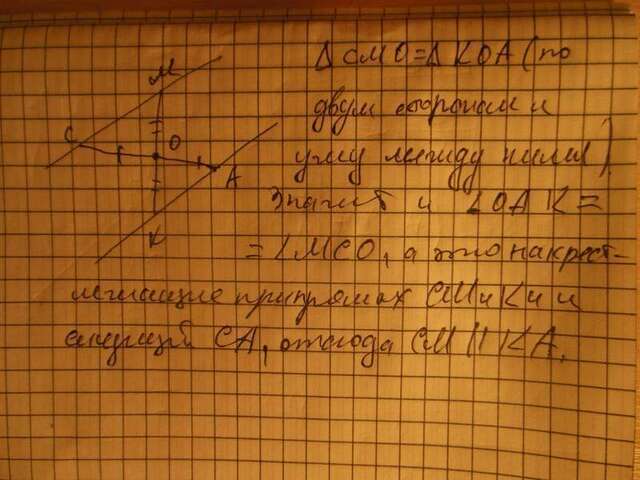 M
C
O
A
K
Δ CMO = Δ KOA (по
двум сторонам и
углу между ними)
Значит и ∠OAK =
= ∠MCO, а это накрест-
лежащие при прямых CM и KA и
секущей CA, отсюда CM || KA.